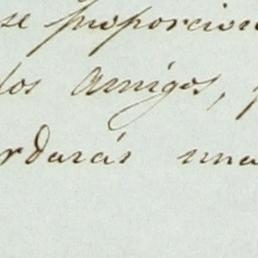 se proporcion
los amigos,
rdarás una